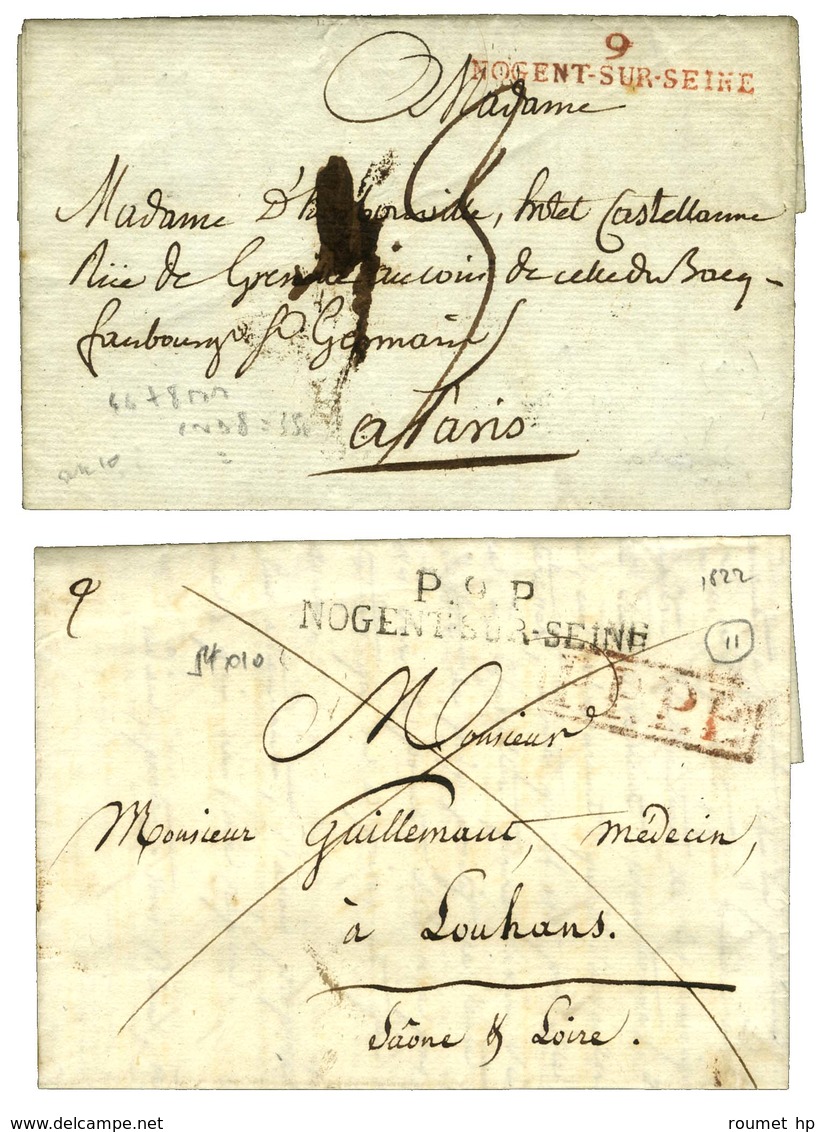 9
NOGENT-SUR-SEINE
Madame
Madame D'herbouville, hotel Castellanne
Rüe de Grenelle au coin de celle du Bacq-
faubourg St Germain
a Paris
P.9.P
NOGENT-SUR-SEINE
1822
11
P.P.P.P.
Monsieur
Monsieur Guillemaut, médecin,
à Louhans.
Saône & Loire.
www.delcampe.net
roumet hp